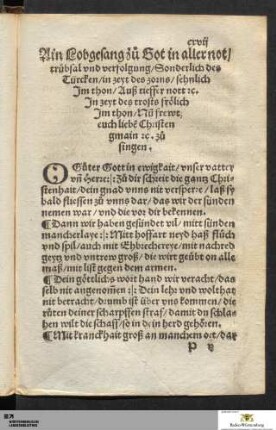 cxvij
Ain Lobgesang zů Got in aller not/
trübsal vnd verfolgung/Sonderlich des
Türcken/in zeyt des zorns/sehnlich
Im thon/Auß tieffer nott ꝛc.
In zeyt des trosts frölich
Im thon/Nů frewt
euch liebē Christen
gmain ꝛc. zů
singen.
O Gůter Gott in ewigkait/vnser vatter
vñ Herr:|: Zů dir schreit die gantz Chri-
stenhait/dein gnad vnns nit versperre/laß sy
bald fliessen zů vnns dar/das wir der sünden
nemen war/vnd die vor dir bekennen.
¶ Dann wir haben gesündet vil/mitt sünden
mancherlaye:|: Mitt hoffart neyd haß flůch
vnd spil/auch mit Ehbrecherey/mit nachred
geytz vnd vntrew groß/die wirt geübt on alle
maß/mit list gegen dem armen.
¶ Dein göttlichs wort hand wir veracht/das
selb nit angenomēn:|: Dein lehr vnd wolthat
nit betracht/drumb ist über vns kommen/die
růten deiner scharpffen straf/damit du schla-
hen wilt die schaff/so in dein herd gehören.
¶ Mit kranckhait groß an manchem ort/dar
P v
Baden-Württemberg